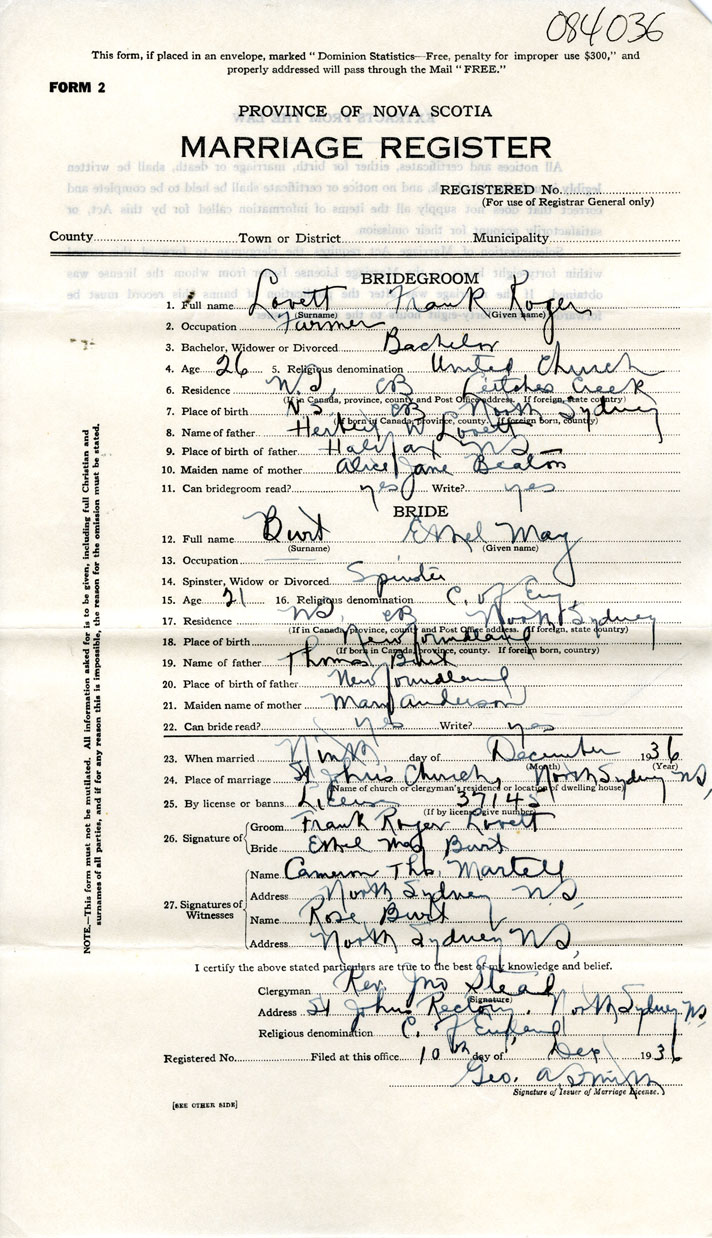 084036
This form, if placed in an envelope, marked "Dominion Statistics—Free, penalty for improper use $300," and
properly addressed will pass through the Mail "FREE."
FORM 2
PROVINCE OF NOVA SCOTIA
MARRIAGE REGISTER
REGISTERED No.
(For use of Registrar General only)
County Town or District Municipality
BRIDEGROOM
1. Full name Lovett Frank Roger
(Surname) (Given name)
2. Occupation Farmer
3. Bachelor, Widower or Divorced Bachelor
4. Age 26 5. Religious denomination United Church
6. Residence N.S. CB Leitches Creek
(If in Canada, province, county and Post Office address. If foreign, state country)
7. Place of birth N.S. CB North Sydney
(If born in Canada, province, county. If foreign born, country)
8. Name of father Herbert W Lovett
9. Place of birth of father Halifax NS
10. Maiden name of mother Alice Jane Beaton
11. Can bridegroom read? yes Write? yes
BRIDE
12. Full name Burt Ethel May
(Surname) (Given name)
13. Occupation
14. Spinster, Widow or Divorced Spinster
15. Age 21 16. Religious denomination C. of Eng.
17. Residence NS, CB North Sydney
(If in Canada, province, county and Post Office address. If foreign, state country)
18. Place of birth Newfoundland
(If born in Canada, province, county. If foreign born, country)
19. Name of father Thomas Burt
20. Place of birth of father Newfoundland
21. Maiden name of mother Mary Anderson
22. Can bride read? yes Write? yes
23. When married Ninth day of December 1936
(Month) (Year)
24. Place of marriage St John's Church, North Sydney NS,
(Name of church or clergyman's residence or location of dwelling house)
25. By license or banns License 37145
(If by license give number)
26. Signature of Groom Frank Roger Lovett
Bride Ethel May Burt
27. Signatures of Witnesses Name Cameron Thos Martell
Address North Sydney N.S,
Name Rose Burt
Address North Sydney NS,
I certify the above stated particulars are true to the best of my knowledge and belief.
Clergyman Rev. Jno Stead
(Signature)
Address St John's Rectory, North Sydney NS
Religious denomination C. of England
Registered No. Filed at this office 10th day of Dec 1936
Geo. A Smith
Signature of Issuer of Marriage License.
[SEE OTHER SIDE]
NOTE.—This form must not be mutilated. All information asked for is to be given, including full Christian and
surnames of all parties, and if for any reason this is impossible, the reason for the omission must be stated.